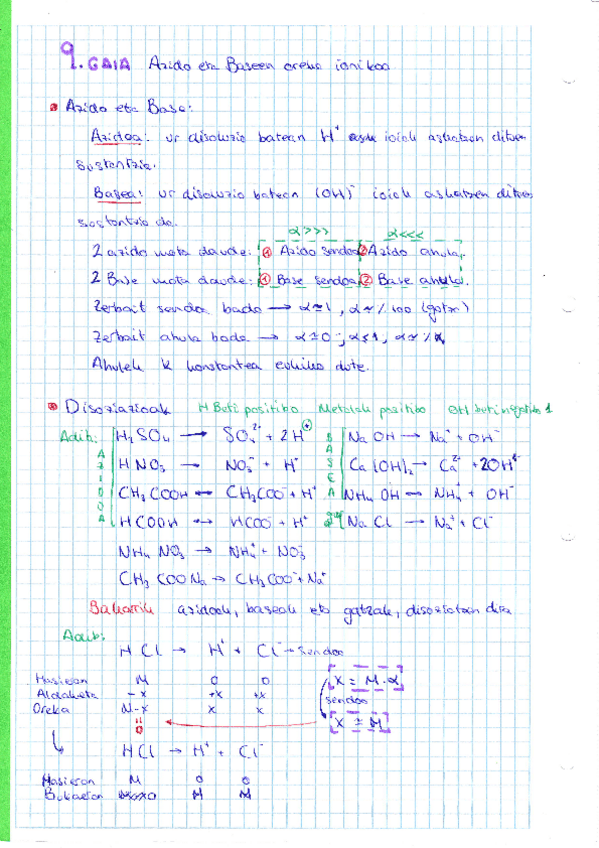 9. GAIA Azido eta Baseen oreka ionikoa
Azido eta Base:
Azidoa: ur disoluzio batean H⁺ ioiak askatzen dituen
sustantzia.
Basea: ur disoluzio batean (OH)⁻ ioiak askatzen dituen
sustantzia da.
α>>> α<<<
2 azido mota daude: ① Azido sendoa ② Azido ahula.
2 Base mota daude: ① Base sendoa ② Base ahula.
Zerbait sendoa bada → α≃1, α≃%100 (gutxi)
Zerbait ahula bada → α≃0; α≤1, α≃%
Ahulek K konstantea edukiko dute.
Disoziazioak H Beti positibo Metalak positibo OH beti negatibo 1
Adib: AZIDOA H₂SO₄ → SO₄²⁻ + 2H⁺ BASEA NaOH → Na⁺ + OH⁻
HNO₃ → NO₃⁻ + H⁺ Ca(OH)₂ → Ca²⁺ + 2OH⁻
CH₃COOH ↔ CH₃COO⁻ + H⁺ NH₄OH ↔ NH₄⁺ + OH⁻
HCOOH ↔ HCOO⁻ + H⁺ NaCl → Na⁺ + Cl⁻
NH₄NO₃ → NH₄⁺ + NO₃⁻
CH₃COONa → CH₃COO⁻ + Na⁺
Bakarrik azidoak, baseak eta gatzak, disoziatzen dira
Adib:
HCl → H⁺ + Cl⁻ → sendoa
Hasieran M 0 0 x = M·α
Aldaketa -x +x +x sendoa
Oreka M-x x x x ≃ M
=0
HCl → H⁺ + Cl⁻
Hasieran M 0 0
Bukaeran M M